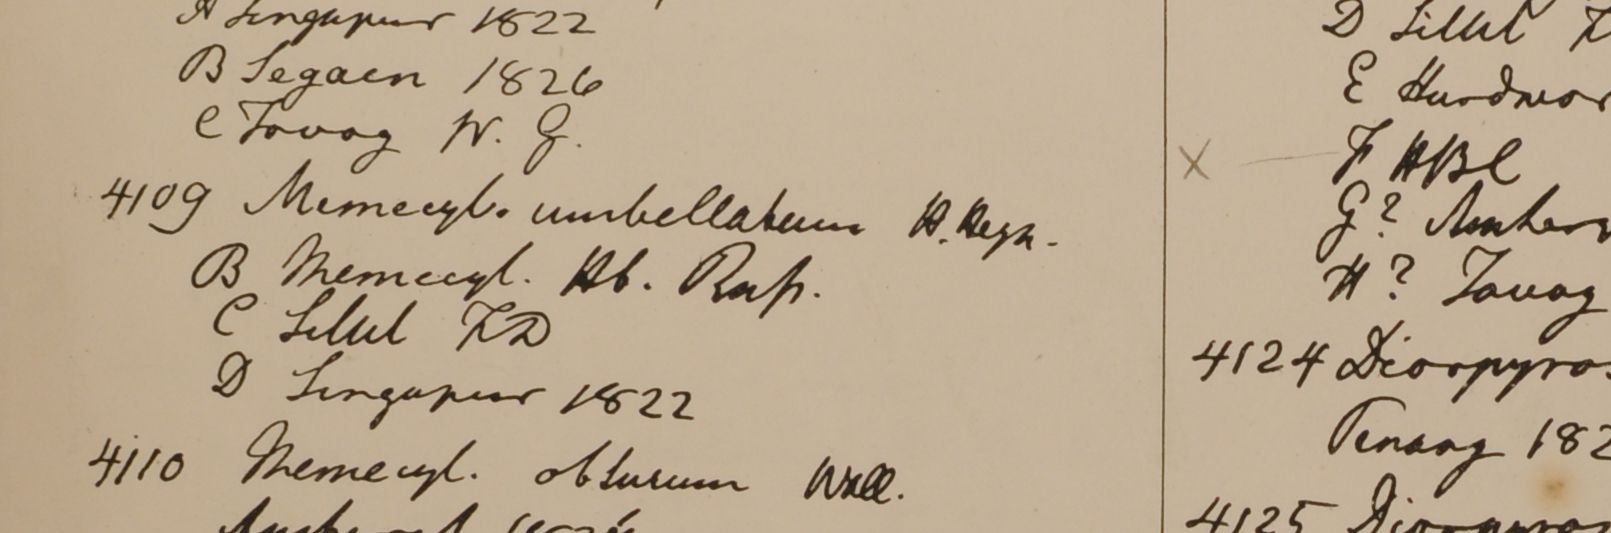 A Singapur 1822
B Segaen 1826
C Tavoy W. G.
4109 Memecyl. umbellatum H. Heyn.
B Memecyl. Hb. Rup.
C Sillet FD
D Singapur 1822
4110 Memecyl. obtusum Wall.
1826
D Sillet F
E Hurdwar
F HBC
G? Amher
H? Tavoy
4124 Diospyros
Penang 182
4125 Diospyros